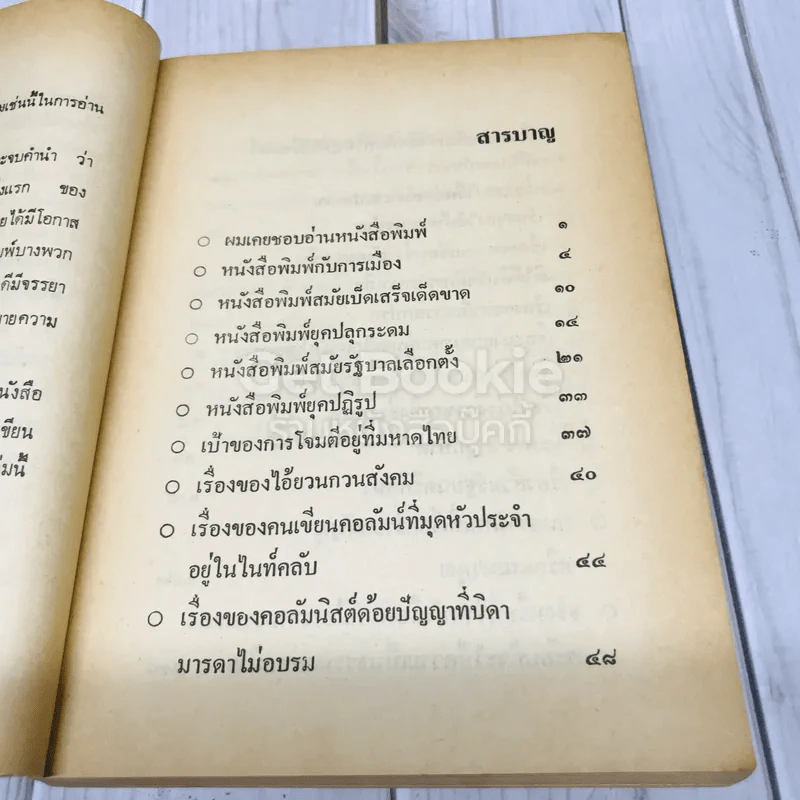 ยเช่นนี้ในการอ่าน
ะจบคำนำ ว่า
งแรก ของ
ยได้มีโอกาส
มพ์บางพวก
ดีมีจรรยา
ายความ
นังสือ
เขียน
่มนี้
สารบาญ
ผมเคยชอบอ่านหนังสือพิมพ์ ๑
หนังสือพิมพ์กับการเมือง ๔
หนังสือพิมพ์สมัยเบ็ดเสร็จเด็ดขาด ๑๐
หนังสือพิมพ์ยุคปลุกระดม ๑๔
หนังสือพิมพ์สมัยรัฐบาลเลือกตั้ง ๒๑
หนังสือพิมพ์ยุคปฏิรูป ๓๓
เป้าของการโจมตีอยู่ที่มหาดไทย ๓๗
เรื่องของไอ้ยวนกวนสังคม ๔๐
เรื่องของคนเขียนคอลัมน์ที่มุดหัวประจำ
อยู่ในไนท์คลับ ๔๔
เรื่องของคอลัมนิสต์ด้อยปัญญาที่บิดา
มารดาไม่อบรม ๔๘
Get Bookie
ร้านหนังสือบุ๊คกี้